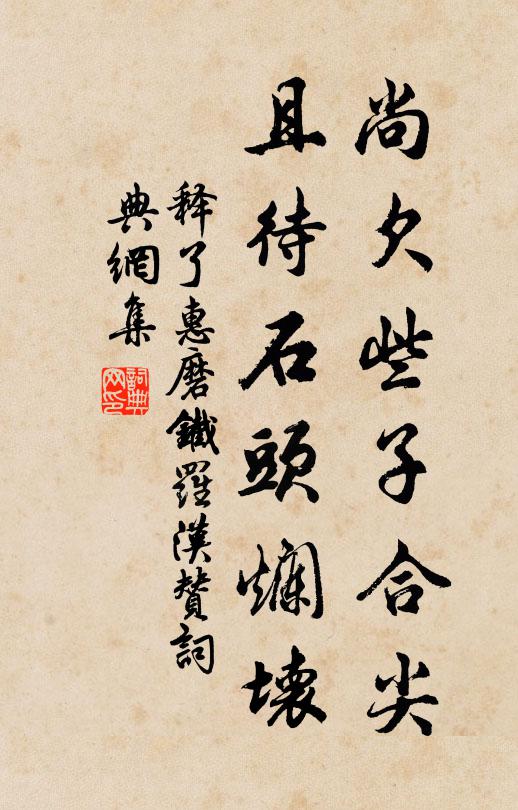 尚欠些子合尖
且待石頭爛壞
释了惠磨鐵羅漢賛詞
典網集
詞典
网印